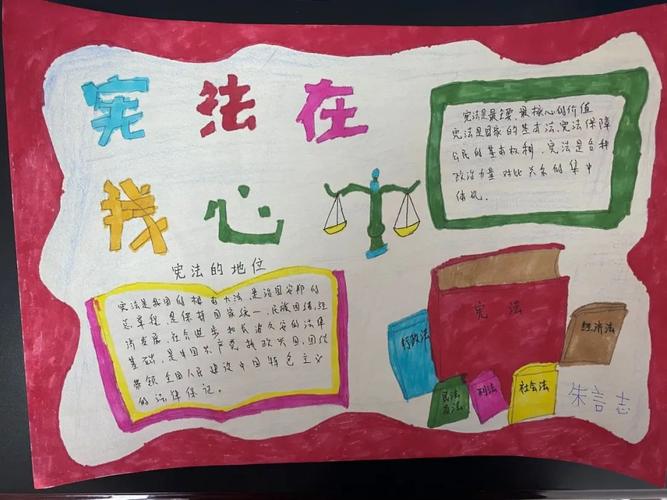 宪法在
我心
宪法是最 最核心的价值
宪法是国家的基本法.宪法保障
公民的基本权利,宪法是各种
政治力量 对比关系的集中
体现。
宪法的地位
宪法是我国的根本大法,是治国安邦的
总章程,是保持国家统一、民族团结,经
济发展,社会进步和长治久安的法律
基础,是中国共产党执政兴国,团结
带领全国人民建设中国特色主义
的法律保证。
宪法
行政法
经济法
民法
商法
刑法
社会法
朱言志